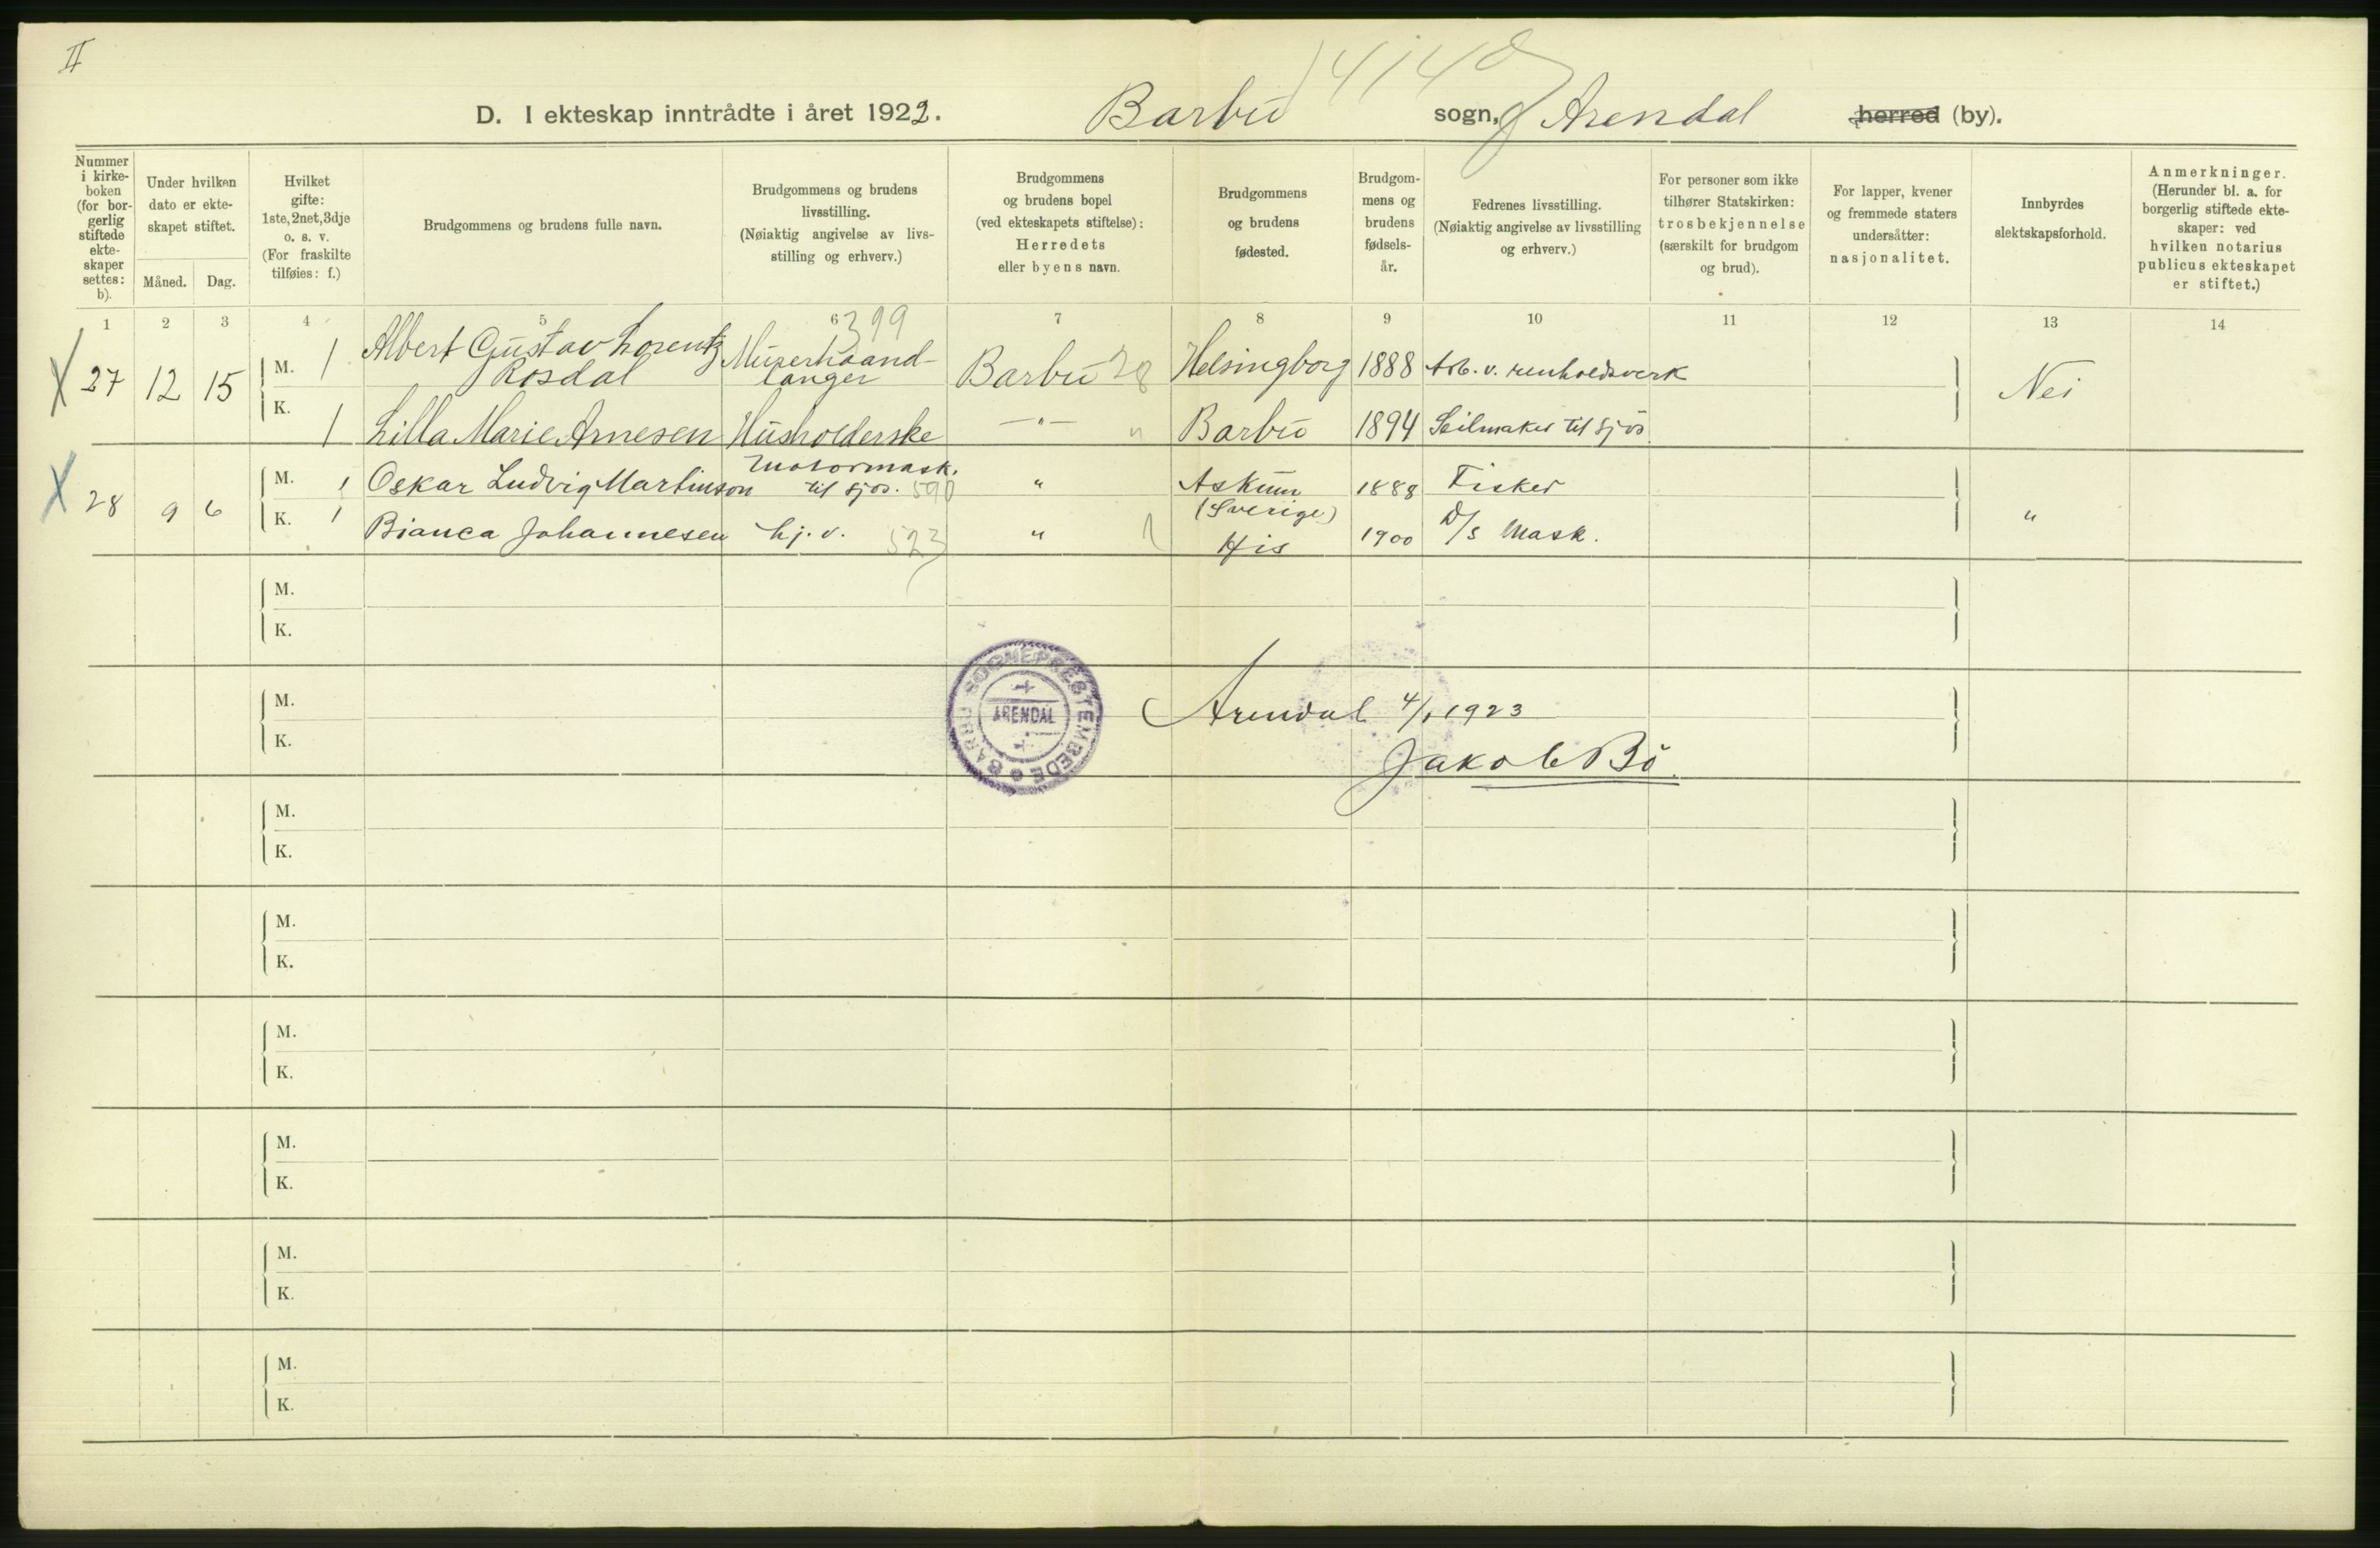 II
1414
D. I ekteskap inntrådte i året 1922. Barbu sogn, Arendal herred (by).
Nummer i kirke-boken (for bor-gerlig stiftede ekte-skaper settes: b).
Under hvilken dato er ekte-skapet stiftet.
Måned. Dag.
Hvilket gifte: 1ste, 2net, 3dje o. s. v. (For fraskilte tilføies: f.)
Brudgommens og brudens fulle navn.
Brudgommens og brudens livsstilling. (Nøiaktig angivelse av livs-stilling og erhverv.)
Brudgommens og brudens bopel (ved ekteskapets stiftelse): Herredets eller byens navn.
Brudgommens og brudens fødested.
Brudgom-mens og brudens fødsels-år.
Fedrenes livsstilling. (Nøiaktig angivelse av livsstilling og erhverv.)
For personer som ikke tilhører Statskirken: trosbekjennelse (særskilt for brudgom og brud).
For lapper, kvener og fremmede staters undersåtter: nasjonalitet.
Innbyrdes slektskapsforhold.
Anmerkninger. (Herunder bl. a. for borgerlig stiftede ekte-skaper: ved hvilken notarius publicus ekteskapet er stiftet.)
1 2 3 4 5 6 7 8 9 10 11 12 13 14
399
X 27 12 15 M. 1 Albert Gustav Lorentz Rosdal Murerhaand-langer Barbu 28 Helsingborg 1888 Arb. v. renholdsverk Nei
K. 1 Lilla Marie Arnesen Husholderske —"— " Barbu 1894 Seilmaker til sjøs
X 28 9 6 M. 1 Oskar Ludvig Martinson Motormask. til sjøs. 590 " Askum (Sverige) 1888 Fisker "
K. 1 Bianca Johannesen hj. v. 523 " His 1900 D/s Mask.
M.
K.
M.
K.
BARBU SOGNEPRESTEMBEDE
ARENDAL
Arendal 4/1 1923
Jakob Bö.
M.
K.
M.
K.
M.
K.
M.
K.
M.
K.
M.
K.